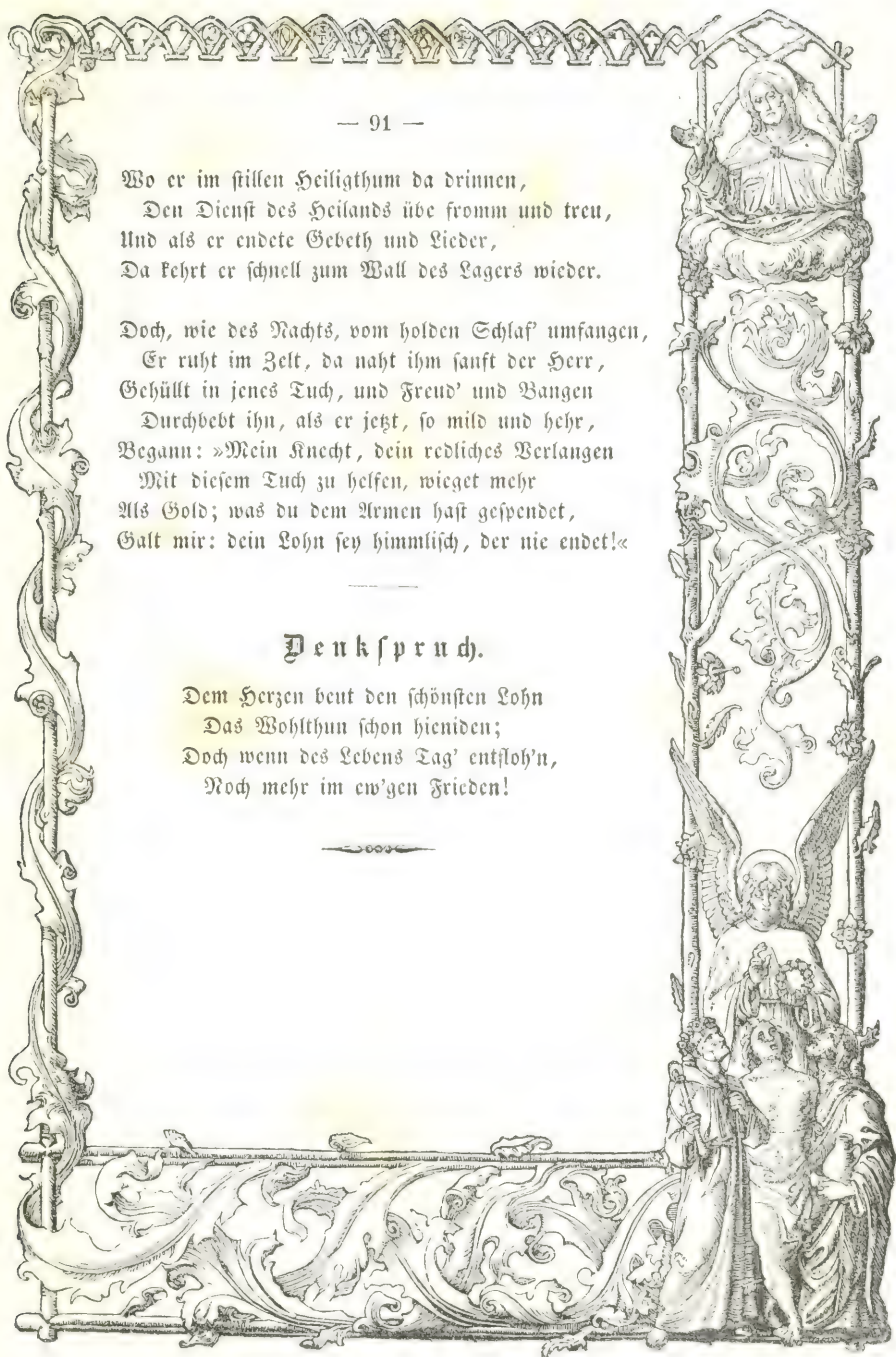 — 91 —
Wo er im stillen Heiligthum da drinnen,
Den Dienst des Heilands übe fromm und treu,
Und als er endete Gebeth und Lieder,
Da kehrt er schnell zum Wall des Lagers wieder.
Doch, wie des Nachts, vom holden Schlaf' umfangen,
Er ruht im Zelt, da naht ihm sanft der Herr,
Gehüllt in jenes Tuch, und Freud' und Bangen
Durchbebt ihn, als er jetzt, so mild und hehr,
Begann: »Mein Knecht, dein redliches Verlangen
Mit diesem Tuch zu helfen, wieget mehr
Als Gold; was du dem Armen hast gespendet,
Galt mir: dein Lohn sey himmlisch, der nie endet!«
Denkspruch.
Dem Herzen beut den schönsten Lohn
Das Wohlthun schon hieniden;
Doch wenn des Lebens Tag' entfloh'n,
Noch mehr im ew'gen Frieden!